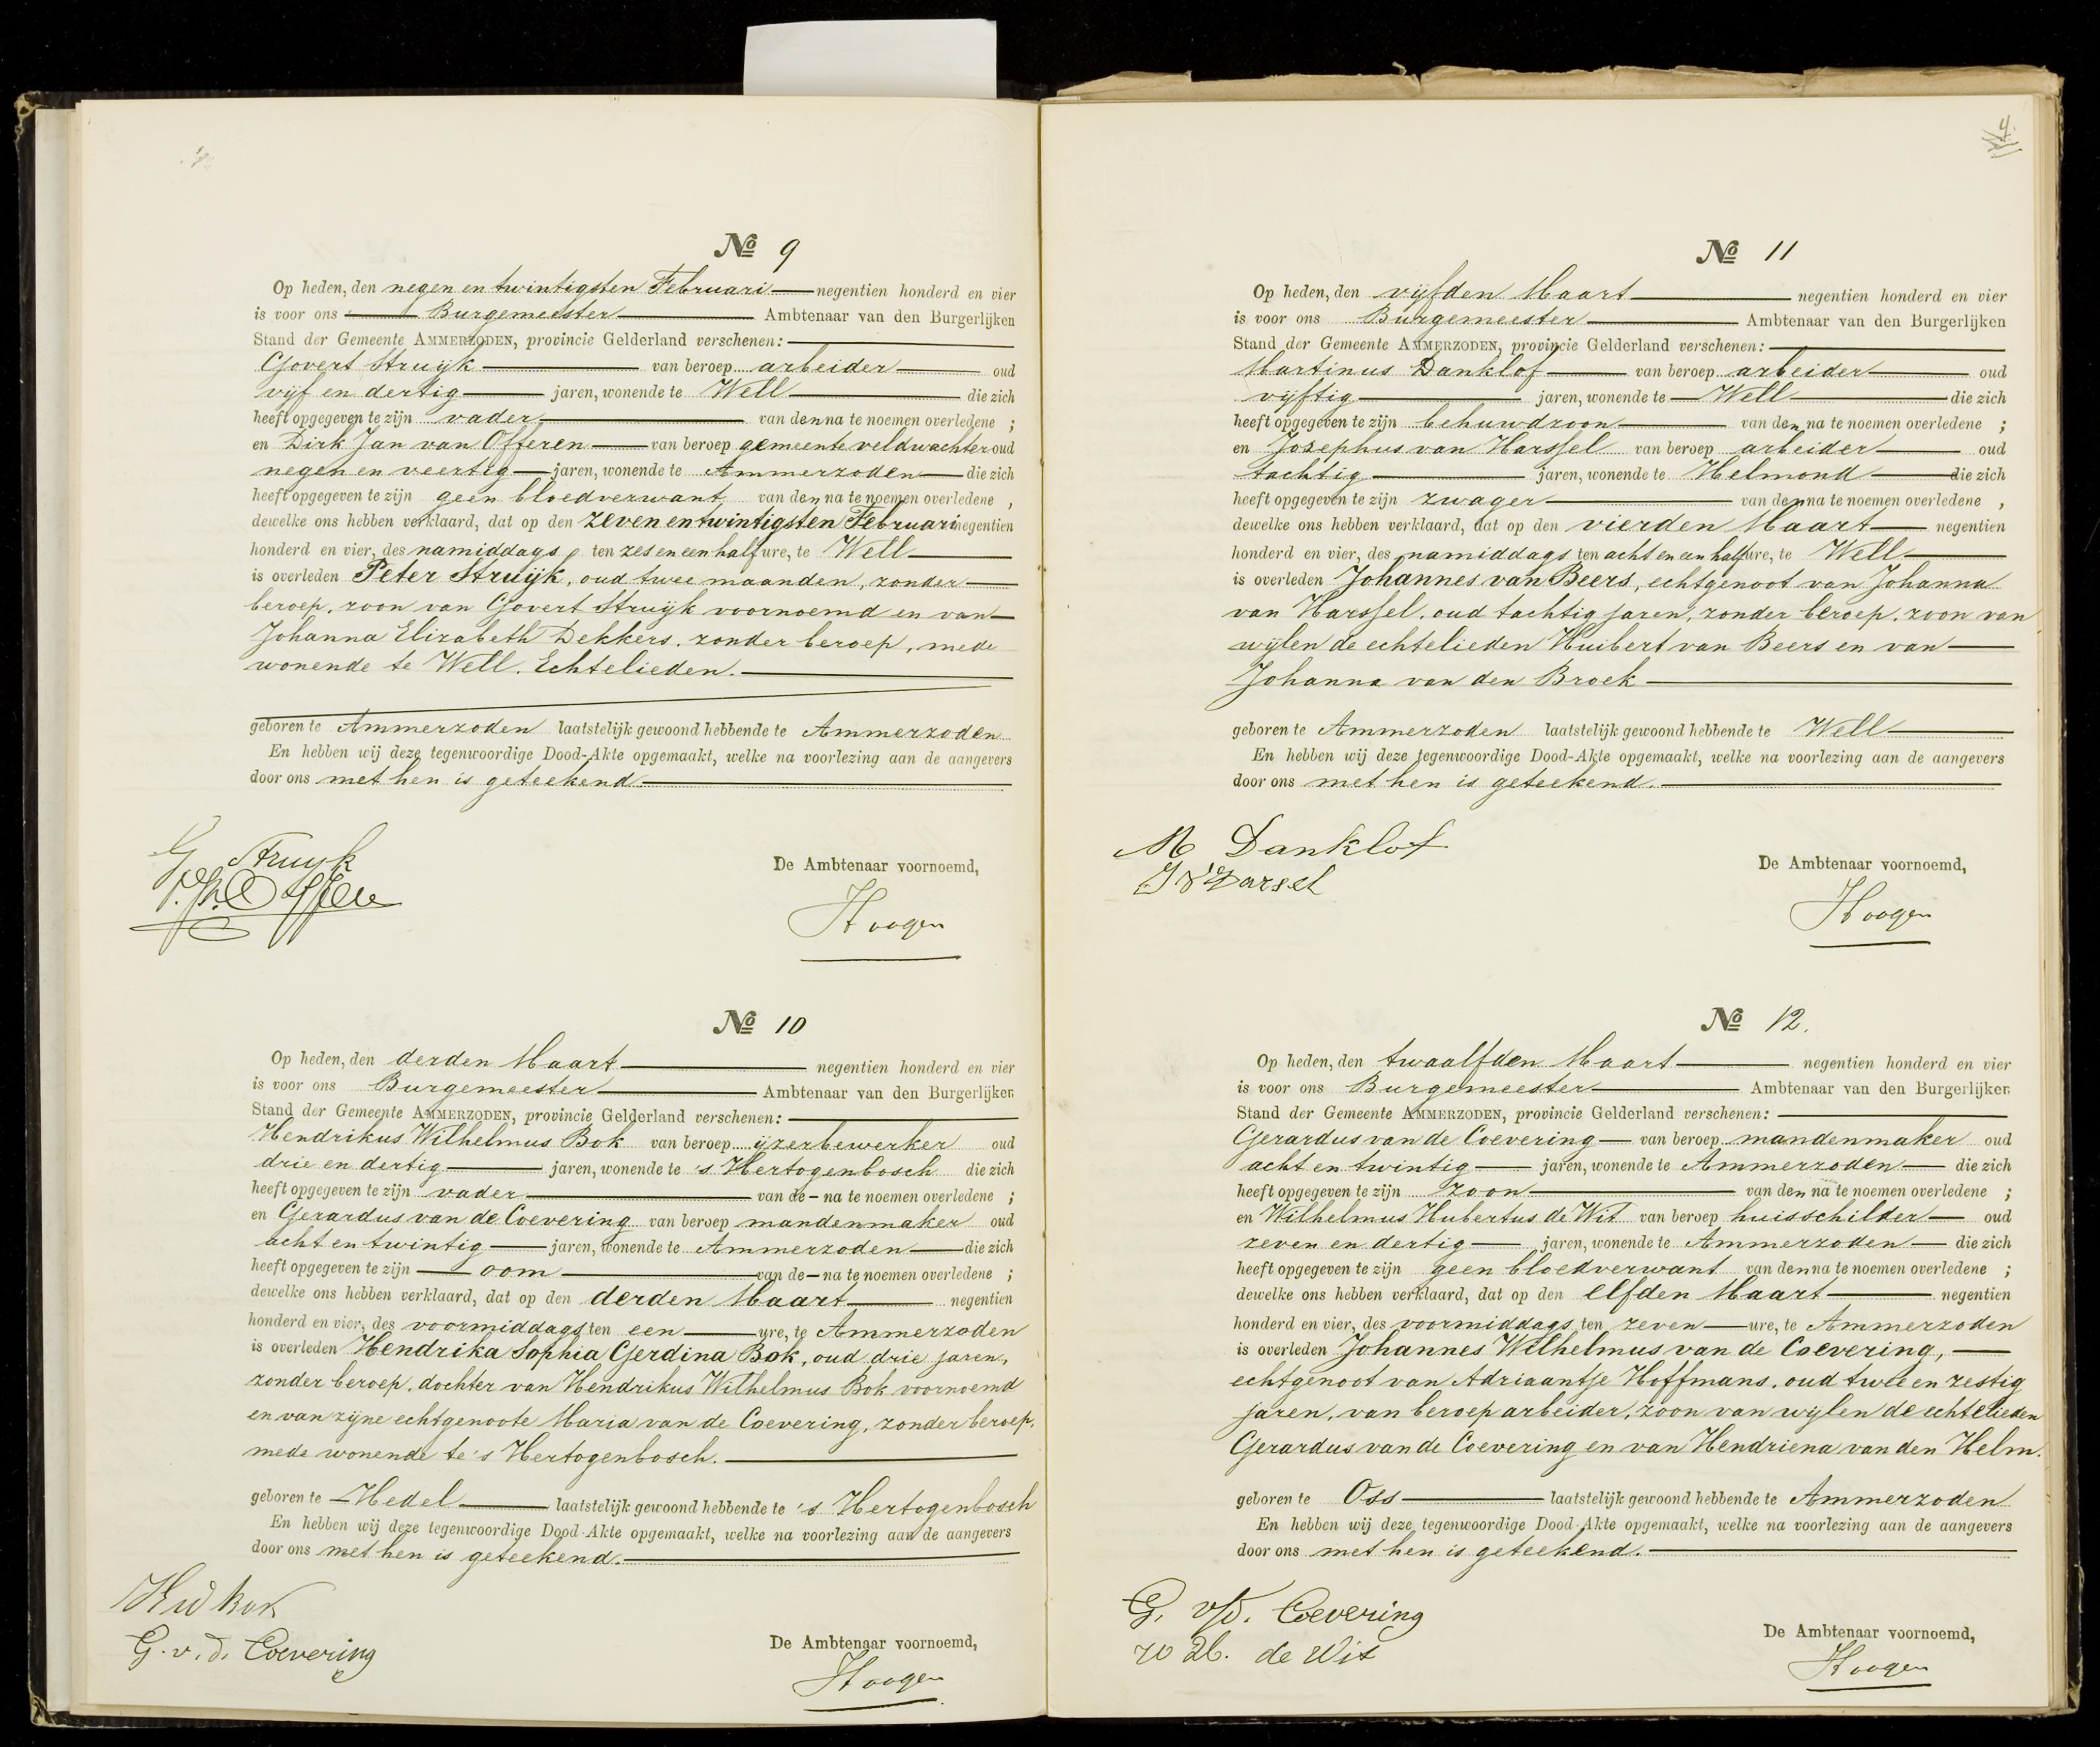 № 9
Op heden, den negen en twintigsten Februari negentien honderd en vier
is voor ons Burgemeester Ambtenaar van den Burgerlijken
Stand der Gemeente AMMERZODEN, provincie Gelderland verschenen:
Govert Struijk van beroep arbeider oud
vijf en dertig jaren, wonende te Well die zich
heeft opgegeven te zijn vader van den na te noemen overledene ;
en Dirk Jan van Offeren van beroep gemeente veldwachter oud
negen en veertig jaren, wonende te Ammerzoden die zich
heeft opgegeven te zijn geen bloedverwant van den na te noemen overledene ,
dewelke ons hebben verklaard, dat op den zeven en twintigsten Februari negentien
honderd en vier, des namiddags ten zes en een half ure, te Well
is overleden Peter Struijk, oud twee maanden, zonder
beroep, zoon van Govert Struijk voornoemd en van
Johanna Elizabeth Dekkers, zonder beroep, mede
wonende te Well. Echtelieden.
geboren te Ammerzoden laatstelijk gewoond hebbende te Ammerzoden
En hebben wij deze tegenwoordige Dood-Akte opgemaakt, welke na voorlezing aan de aangevers
door ons met hen is geteekend.
G Struyk
De Ambtenaar voornoemd,
Hoogen
№ 10
Op heden, den derden Maart negentien honderd en vier
is voor ons Burgemeester Ambtenaar van den Burgerlijken
Stand der Gemeente AMMERZODEN, provincie Gelderland verschenen:
Hendrikus Wilhelmus Bok van beroep ijzerbewerker oud
drie en dertig jaren, wonende te 's Hertogenbosch die zich
heeft opgegeven te zijn vader van de - na te noemen overledene ;
en Gerardus van de Coevering van beroep mandenmaker oud
acht en twintig jaren, wonende te Ammerzoden die zich
heeft opgegeven te zijn oom van de - na te noemen overledene ;
dewelke ons hebben verklaard, dat op den derden Maart negentien
honderd en vier, des voormiddags ten een ure, te Ammerzoden
is overleden Hendrika Sophia Gerdina Bok, oud drie jaren,
zonder beroep, dochter van Hendrikus Wilhelmus Bok voornoemd
en van zijne echtgenoote Maria van de Coevering, zonder beroep,
mede wonende te 's Hertogenbosch.
geboren te Hedel laatstelijk gewoond hebbende te 's Hertogenbosch
En hebben wij deze tegenwoordige Dood-Akte opgemaakt, welke na voorlezing aan de aangevers
door ons met hen is geteekend.
HW Bok
G. v. d. Coevering
De Ambtenaar voornoemd,
Hoogen
4.
№ 11
Op heden, den vijfden Maart negentien honderd en vier
is voor ons Burgemeester Ambtenaar van den Burgerlijken
Stand der Gemeente AMMERZODEN, provincie Gelderland verschenen:
Martinus Danklof van beroep arbeider oud
vijftig jaren, wonende te Well die zich
heeft opgegeven te zijn behuwdzoon van den na te noemen overledene ;
en Josephus van Harssel van beroep arbeider oud
tachtig jaren, wonende te Helmond die zich
heeft opgegeven te zijn zwager van den na te noemen overledene ,
dewelke ons hebben verklaard, dat op den vierden Maart negentien
honderd en vier, des namiddags ten acht en een half ure, te Well
is overleden Johannes van Beers, echtgenoot van Johanna
van Harssel, oud tachtig jaren, zonder beroep, zoon van
wijlen de echtelieden Huibert van Beers en van
Johanna van den Broek
geboren te Ammerzoden laatstelijk gewoond hebbende te Well
En hebben wij deze tegenwoordige Dood-Akte opgemaakt, welke na voorlezing aan de aangevers
door ons met hen is geteekend.
M Danklof
J v Harsel
De Ambtenaar voornoemd,
Hoogen
№ 12.
Op heden, den twaalfden Maart negentien honderd en vier
is voor ons Burgemeester Ambtenaar van den Burgerlijken
Stand der Gemeente AMMERZODEN, provincie Gelderland verschenen:
Gerardus van de Coevering van beroep mandenmaker oud
acht en twintig jaren, wonende te Ammerzoden die zich
heeft opgegeven te zijn zoon van den na te noemen overledene ;
en Wilhelmus Hubertus de Wit van beroep huisschilder oud
zeven en dertig jaren, wonende te Ammerzoden die zich
heeft opgegeven te zijn geen bloedverwant van den na te noemen overledene ;
dewelke ons hebben verklaard, dat op den elfden Maart negentien
honderd en vier, des voormiddags ten zeven ure, te Ammerzoden
is overleden Johannes Wilhelmus van de Coevering,
echtgenoot van Adriaantje Hoffmans, oud twee en zestig
jaren, van beroep arbeider, zoon van wijlen de echtelieden
Gerardus van de Coevering en van Hendriena van den Helm.
geboren te Oss laatstelijk gewoond hebbende te Ammerzoden
En hebben wij deze tegenwoordige Dood-Akte opgemaakt, welke na voorlezing aan de aangevers
door ons met hen is geteekend.
G. v/d. Coevering
W H. de Wit
De Ambtenaar voornoemd,
Hoogen